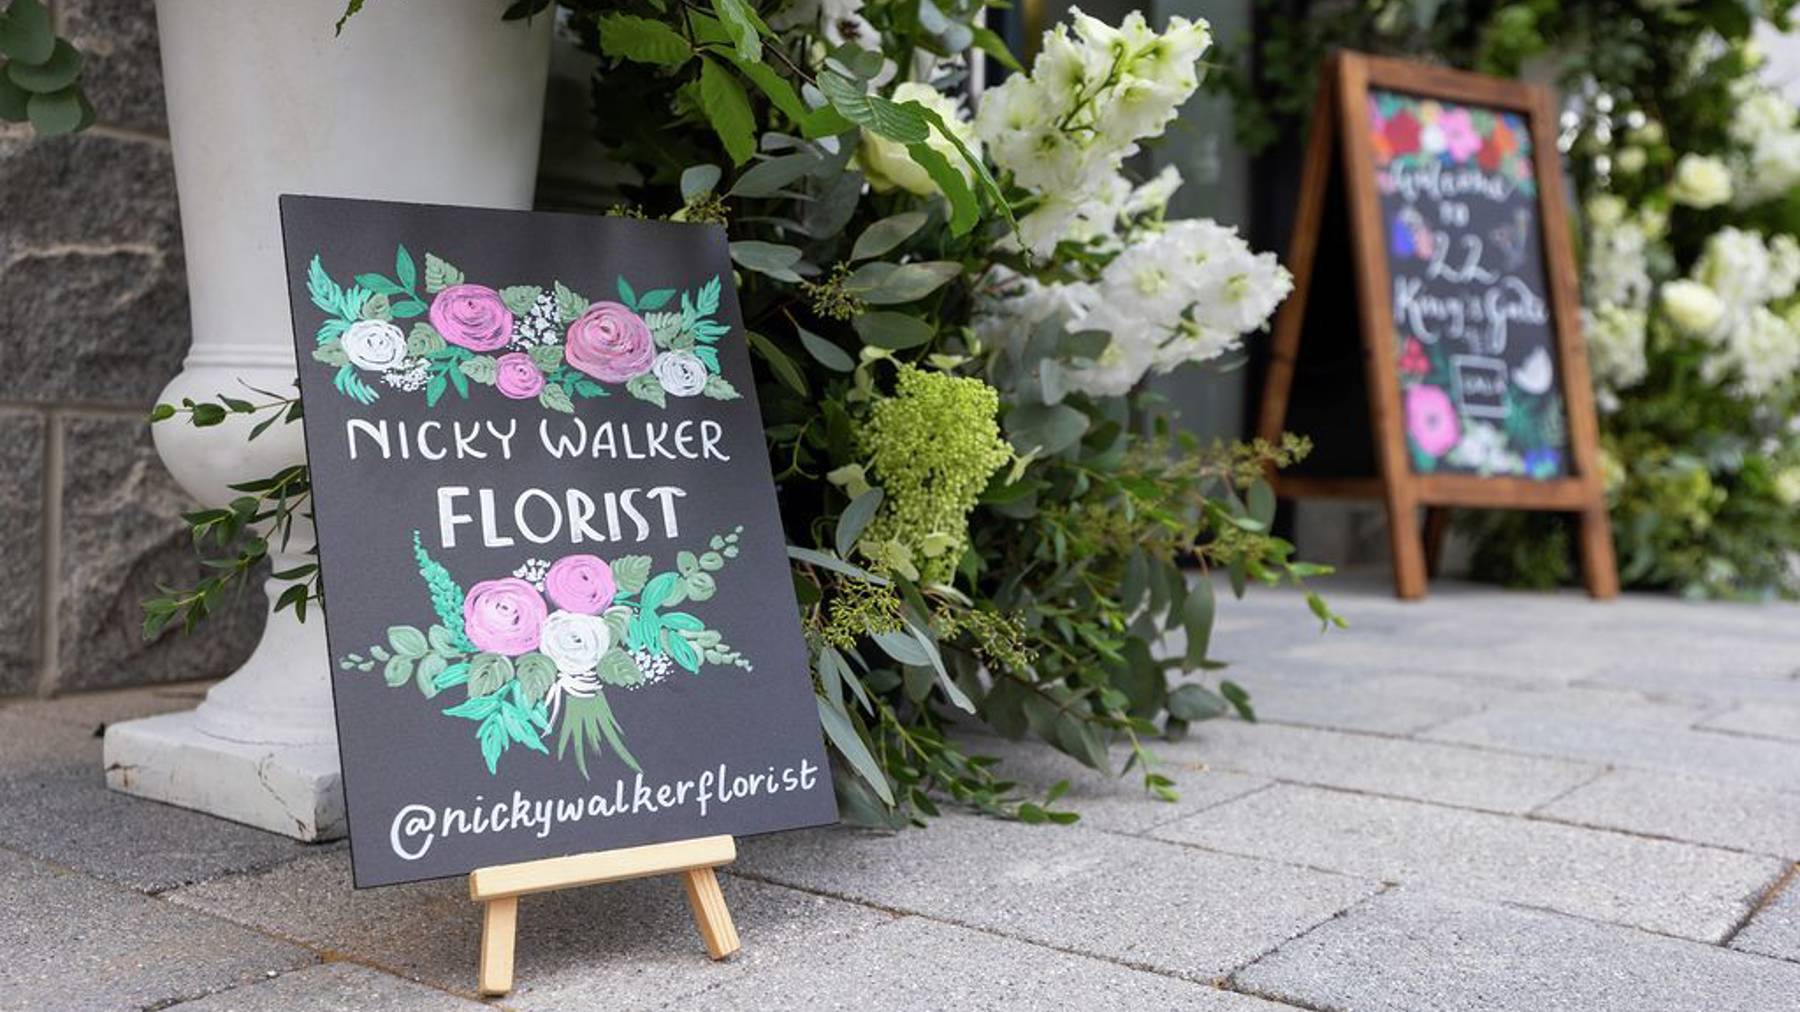 NICKY WALKER
FLORIST
@nickywalkerflorist
Welcome
TO
22
King's Gate